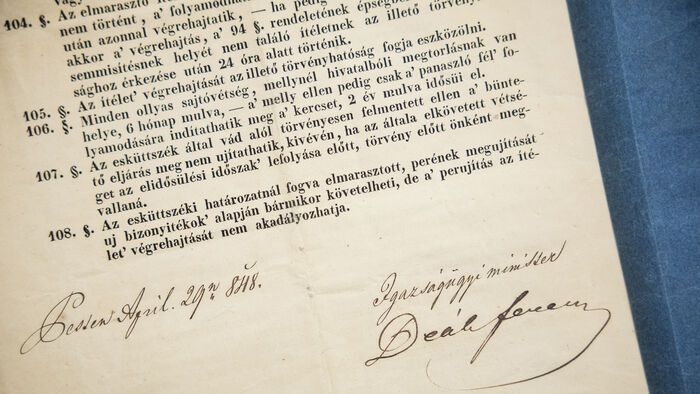 vagy
104. §. Az elmarasztó
nem történt, a' folyamodás
után azonnal végrehajtatik, — ha pedig
akkor a' végrehajtás, a' 94 §. rendeletének épségben
semmisítésnek helyét nem találó ítéletnek az illető törvény-
sághoz érkezése után 24 óra alatt történik.
105. §. Az ítélet' végrehajtását az illető törvényhatóság fogja eszközölni.
106. §. Minden ollyas sajtóvétség, mellynél hivatalbóli megtorlásnak van
helye, 6 hónap mulva, — a' melly ellen pedig csak a' panaszló fél' fo-
lyamodására indíttathatik meg a' kereset, 2 év mulva idősül el.
107. §. Az esküttszék által vád alól törvényesen felmentett ellen a' bünte-
tő eljárás meg nem ujítathatik, kivévén, ha az általa elkövetett vétsé-
get az elidősülési időszak' lefolyása előtt, törvény előtt önként meg-
vallaná.
108. §. Az esküttszéki határozatnál fogva elmarasztott, perének megujítását
uj bizonyítékok' alapján bármikor követelheti, de a' perujítás az íté-
let' végrehajtását nem akadályozhatja.
Pesten April. 29n 848.
Igazságügyi minister
Deák Ferencz